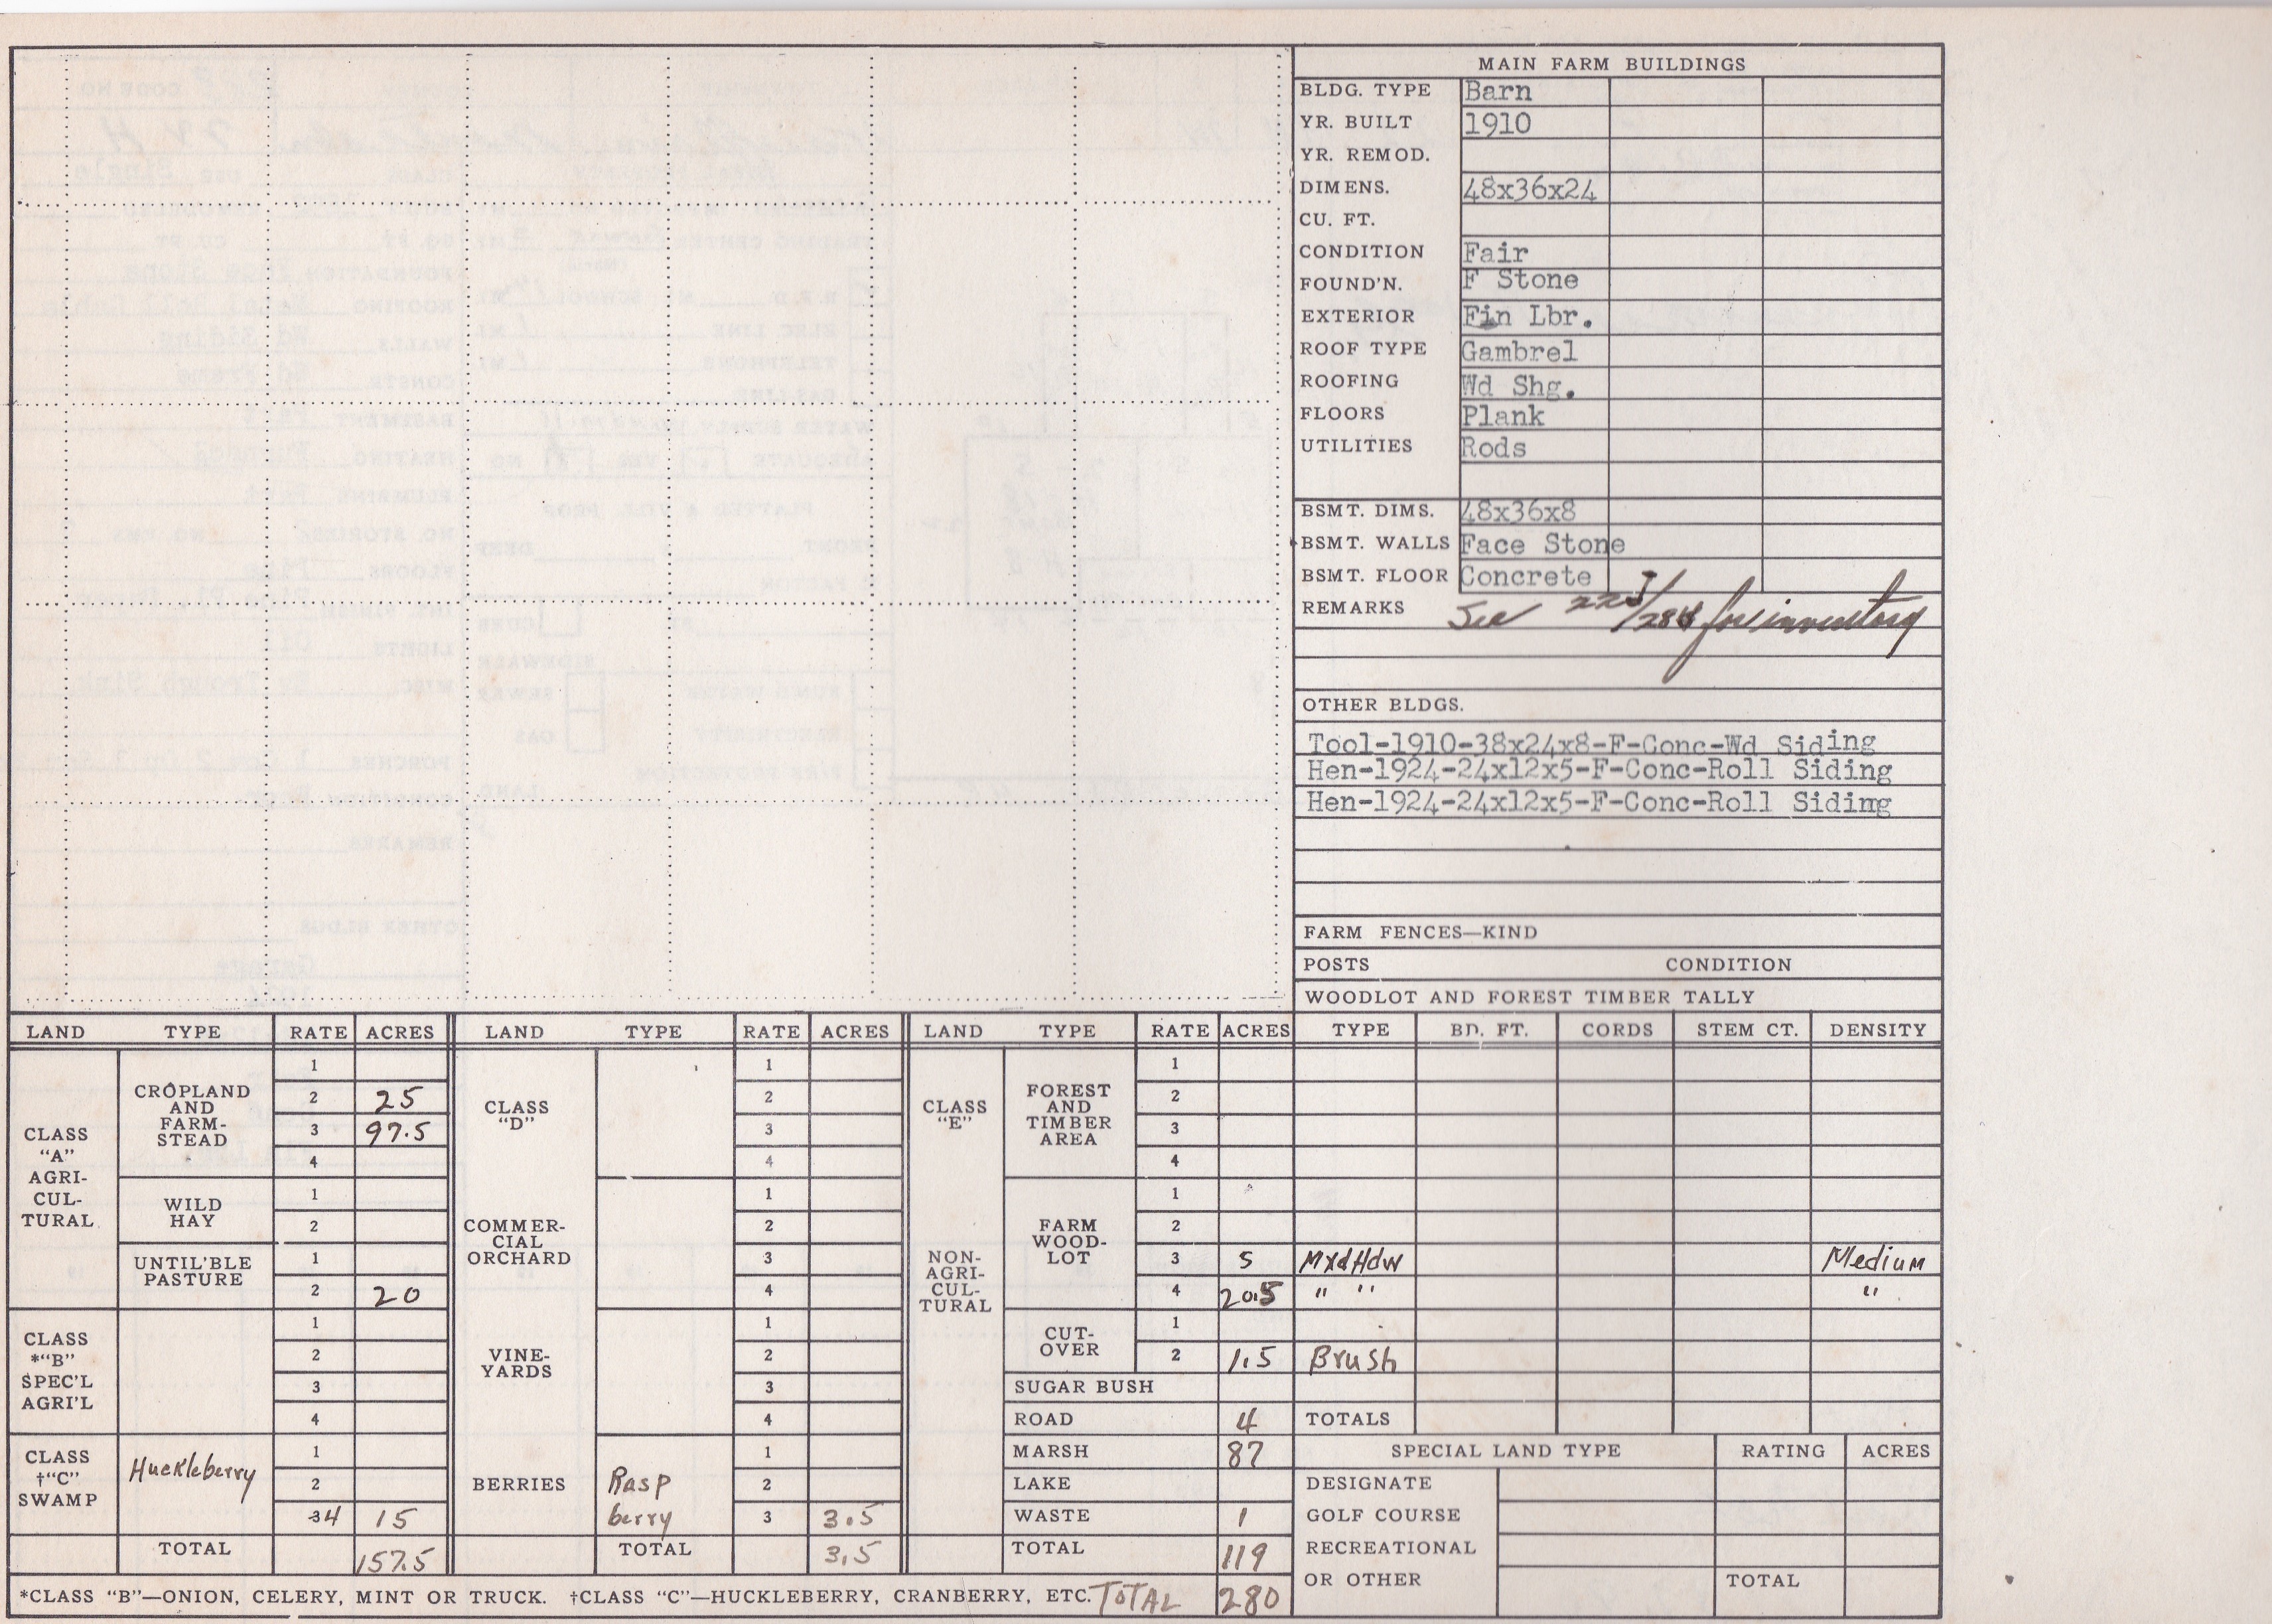 MAIN FARM BUILDINGS
BLDG. TYPE Barn
YR. BUILT 1910
YR. REMOD.
DIMENS. 48x36x24
CU. FT.
CONDITION Fair
FOUND'N. F Stone
EXTERIOR Fin Lbr.
ROOF TYPE Gambrel
ROOFING Wd Shg.
FLOORS Plank
UTILITIES Rods
BSMT. DIMS. 48x36x8
BSMT. WALLS Face Stone
BSMT. FLOOR Concrete
REMARKS See for inventory
OTHER BLDGS.
Tool-1910-38x24x8-F-Conc-Wd Siding
Hen-1924-24x12x5-F-Conc-Roll Siding
Hen-1924-24x12x5-F-Conc-Roll Siding
FARM FENCES—KIND
POSTS CONDITION
WOODLOT AND FOREST TIMBER TALLY
LAND TYPE RATE ACRES LAND TYPE RATE ACRES LAND TYPE RATE ACRES TYPE BD. FT. CORDS STEM CT. DENSITY
CLASS "A" AGRI-CUL-TURAL
CROPLAND AND FARM-STEAD
1
2 25
3 97.5
4
WILD HAY
1
2
UNTIL'BLE PASTURE
1
2 20
CLASS *"B" SPEC'L AGRI'L
1
2
3
4
CLASS †"C" SWAMP
Huckleberry
1
2
3 4 15
TOTAL 157.5
CLASS "D"
COMMER-CIAL ORCHARD
1
2
3
4
1
2
3
4
VINE-YARDS
1
2
3
4
BERRIES
Rasp
berry
1
2
3 3.5
TOTAL 3.5
CLASS "E"
NON-AGRI-CUL-TURAL
FOREST AND TIMBER AREA
1
2
3
4
FARM WOOD-LOT
1
2
3 5 Mxd Hdw Medium
4 20.5 " " "
CUT-OVER
1
2 1.5 Brush
SUGAR BUSH
ROAD 4 TOTALS
MARSH 87
LAKE
WASTE 1
TOTAL 119
SPECIAL LAND TYPE RATING ACRES
DESIGNATE
GOLF COURSE
RECREATIONAL
OR OTHER TOTAL
*CLASS "B"—ONION, CELERY, MINT OR TRUCK. †CLASS "C"—HUCKLEBERRY, CRANBERRY, ETC. TOTAL 280